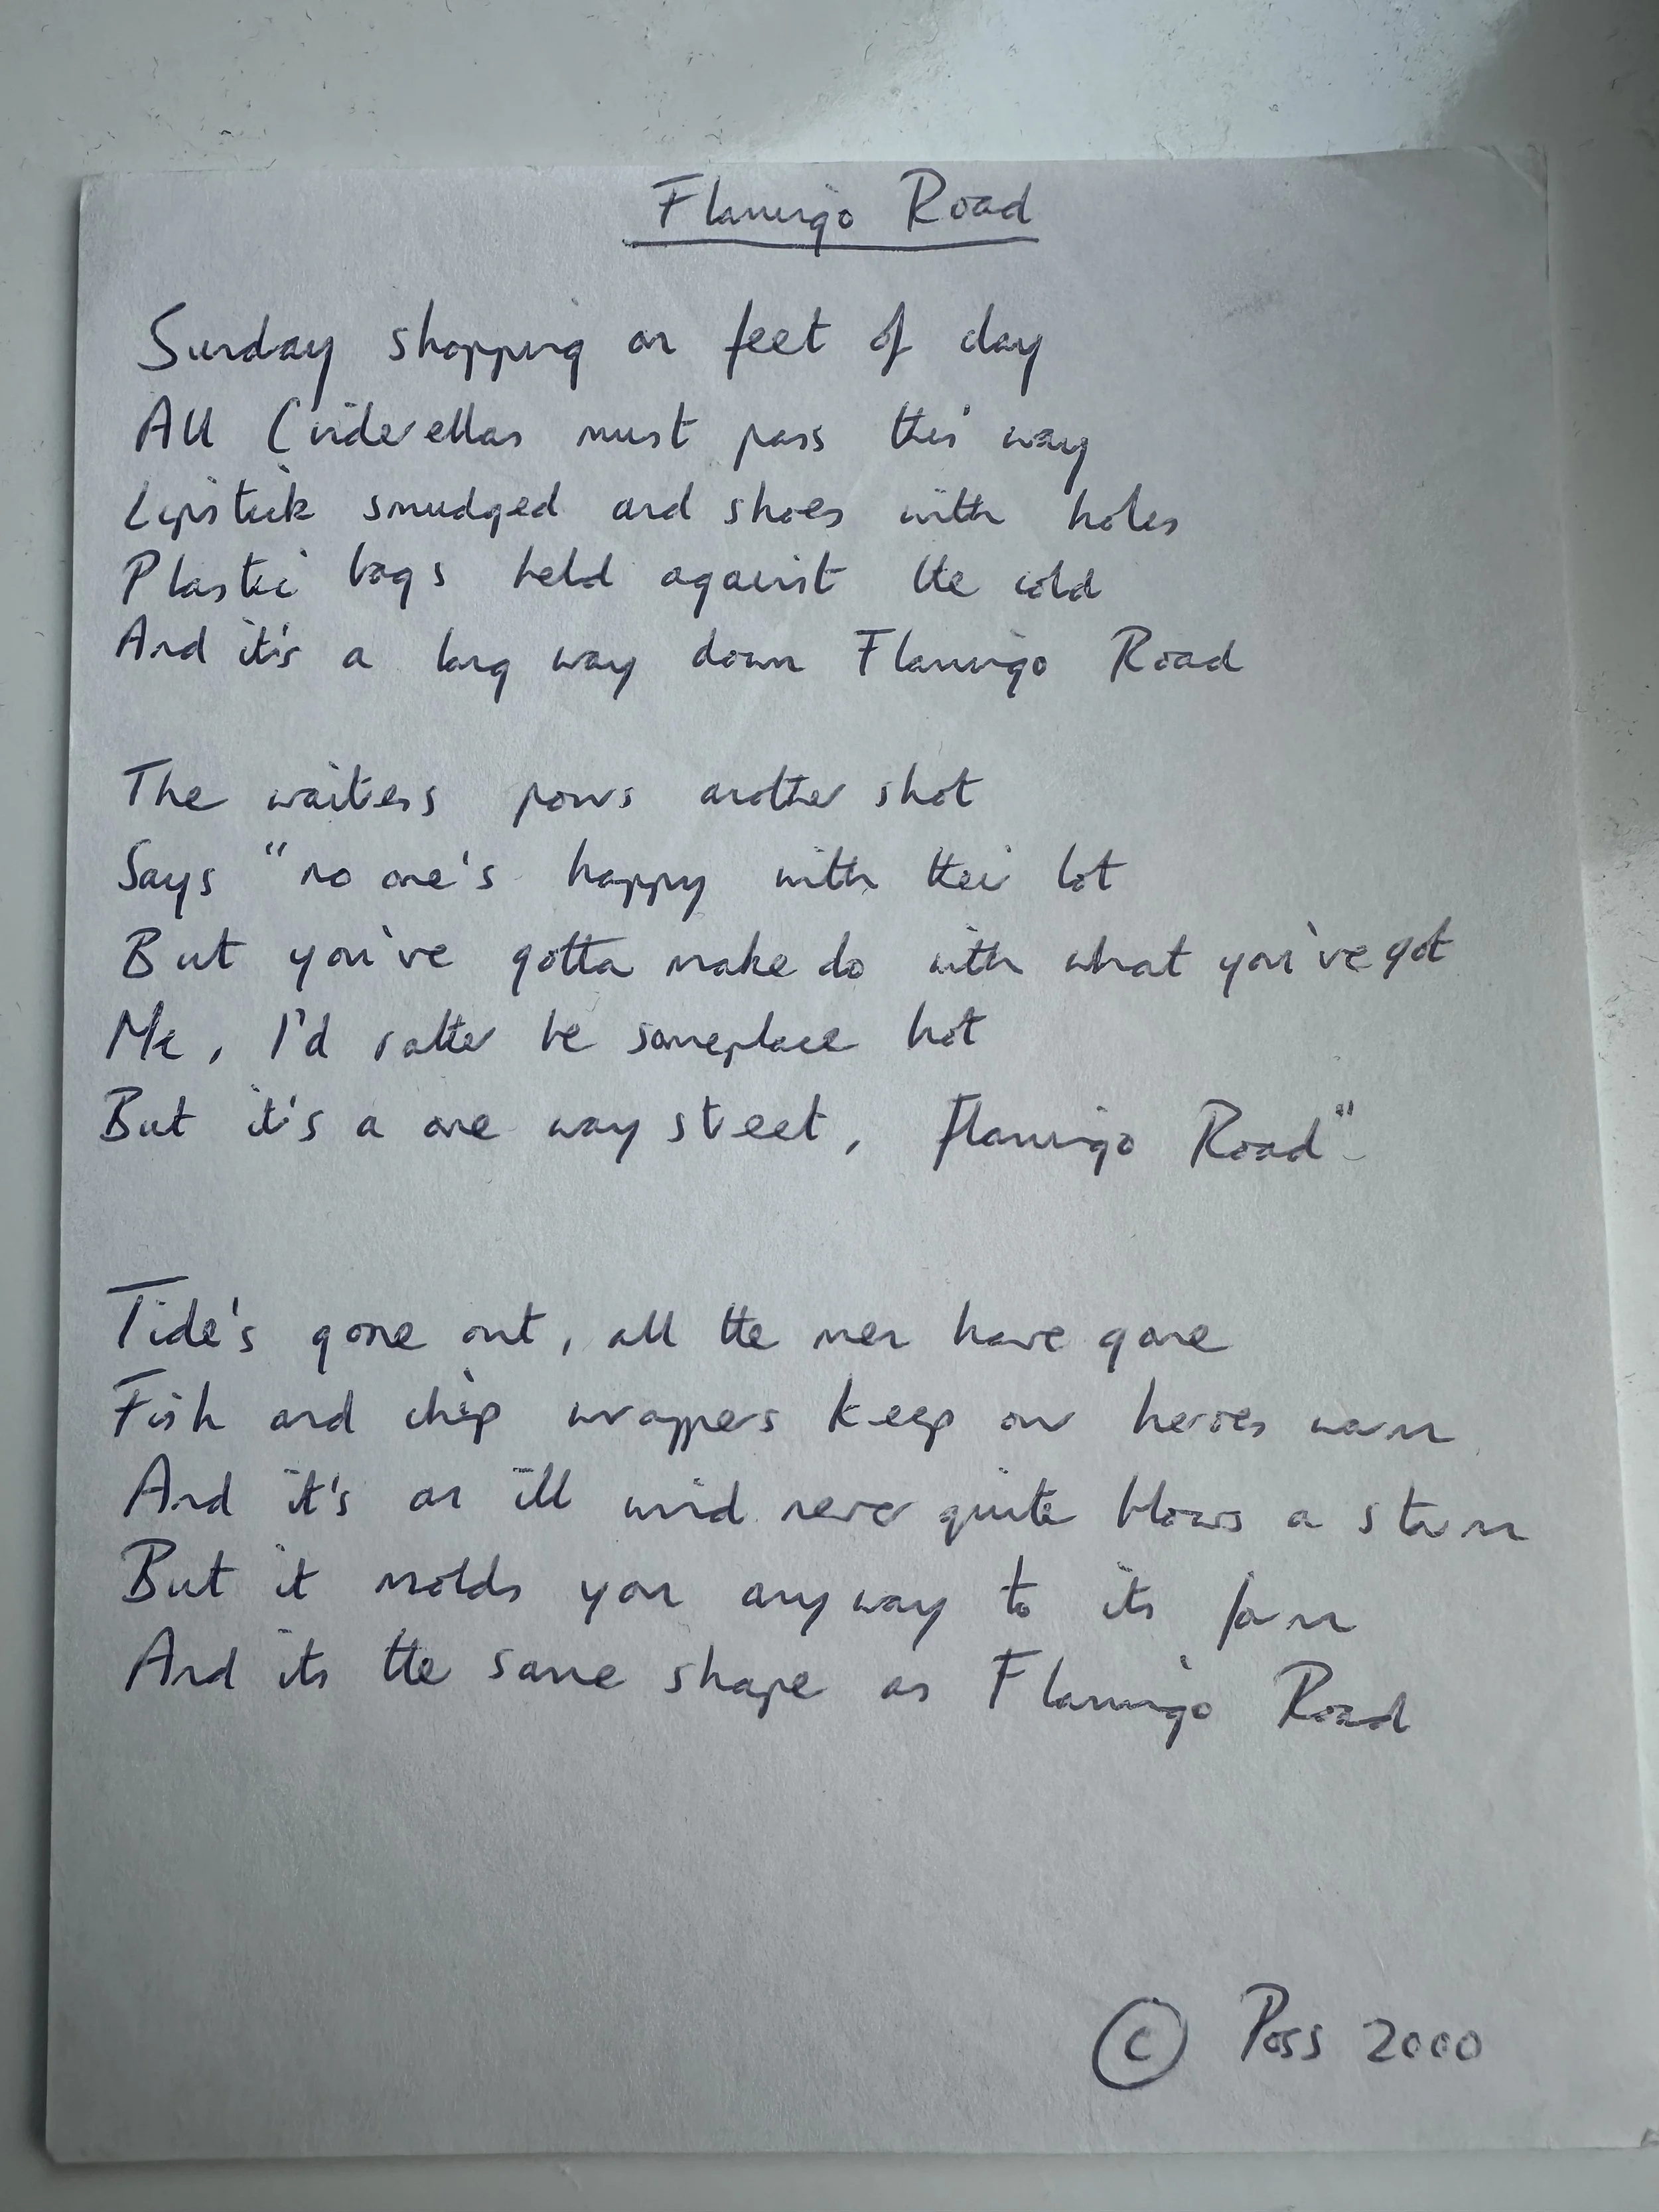 Flamingo Road
Sunday shopping on feet of clay
All Cinderellas must pass this way
Lipstick smudged and shoes with holes
Plastic bags held against the cold
And it's a long way down Flamingo Road
The waitress pours another shot
Says "no one's happy with their lot
But you've gotta make do with what you've got
Me, I'd rather be someplace hot
But it's a one way street, Flamingo Road"
Tide's gone out, all the men have gone
Fish and chip wrappers keep our heroes warm
And it's an ill wind never quite blows a storm
But it molds you anyway to its form
And its the same shape as Flamingo Road
© Poss 2000